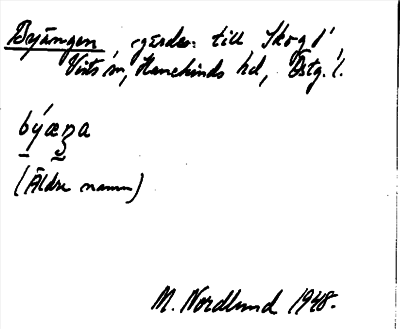 Byängen gärden till Skog
Vists sn, Hanekinds hd, Östg. l.
býæŋa
(Äldre namn)
M. Nordlund 1948.